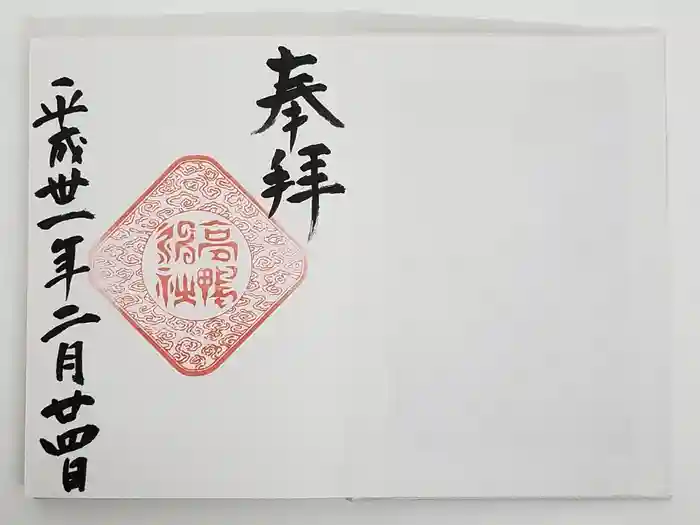 奉拝
高鴨
神社
平成卅一年二月廿四日